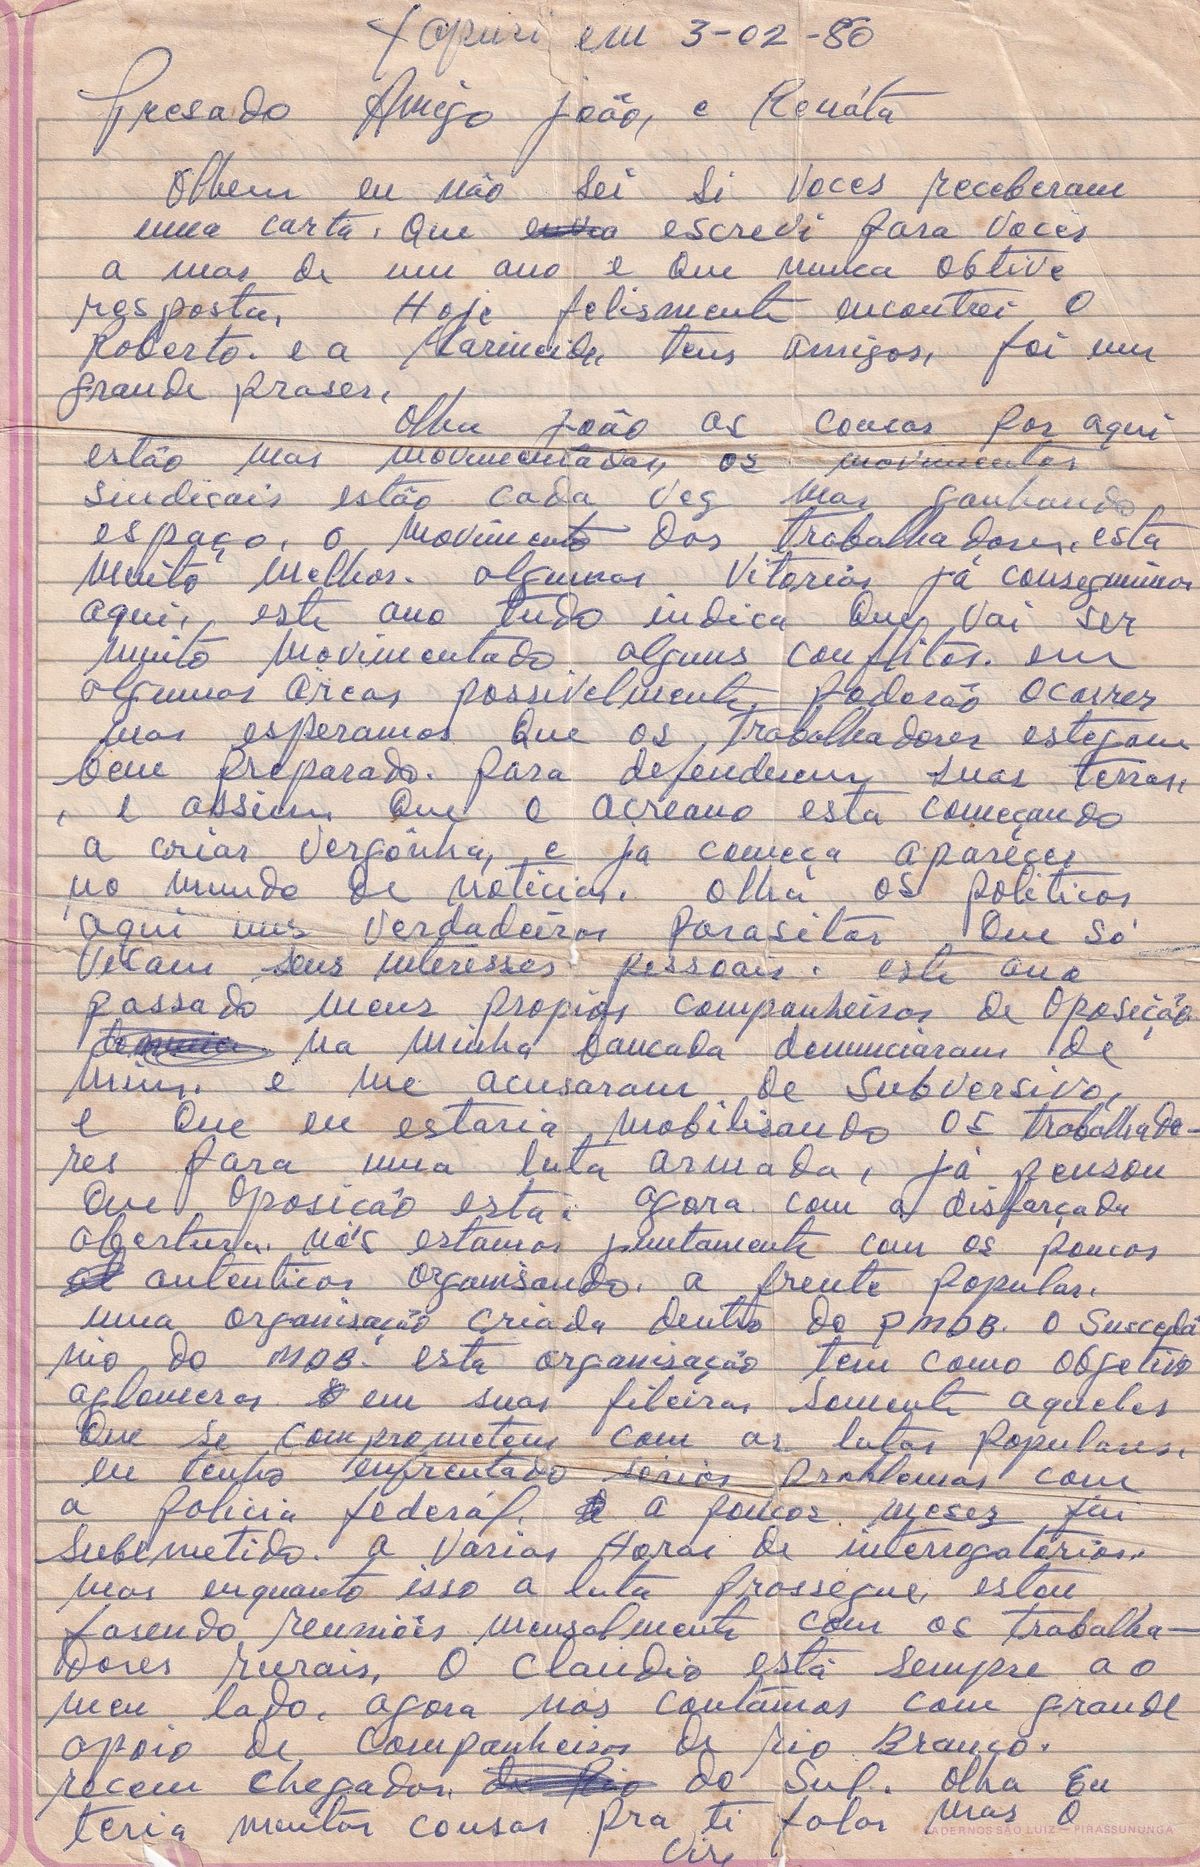 Xapuri em 3-02-80
Presado Amigo João, e Renáta
Olhem eu não sei si voces receberam
uma carta. que escrevi para voces
a mas de um ano e que nunca obtive
resposta, Hoje felismente encontrei o
Roberto. e a Marineide, teus amigos, foi um
grande praser,
Olha joão as cousas por aqui
estão mas movimentadas, os movimentos
sindicais estão cada veg mas ganhando
espaço, o movimento dos trabalhadores, esta
muito melhor. algumas vitorias já conseguimos
aqui, este ano tudo indica que vai ser
muito movimentado alguns conflitos. em
algumas areas possivelmente poderão ocorrer
mas esperamos que os trabalhadores estegam
bem preparado. para defenderem suas terras,
, e assim que o acreano esta começando
a criar vergônha, e ja começa apareçer
no mundo de noticias. olha os politicos
aqui uns verdadeiros parasitas que só
visam seus interesses pessoais. este ano
passado meus propios companheiros de oposição
na minha bancada denunciaram de
mim. e me acusaram de subversivo,
e que eu estaria mobilisando os trabalhado-
res para uma luta armada, já pensou
que oposição esta: agora com a disfarçada
abertura. nós estamos juntamente com os poucos
autenticos organisando. a frente popular.
uma organisação criada dentro do PMDB. o sucedâ
nio do MDB. esta organisação tem como obgetivo
aglomerar em suas fileiras somente aqueles
que se comprometem com as lutas populares,
eu tenho enfrentado serios problemas com
a policia federál. a poucos meses fui
submetido. a varias Horas de interrogatorios.
mas enquanto isso a luta prossegue, estou
fasendo reuniões mensalmente com os trabalha-
dores rurais, O Claudio está sempre ao
meu lado. agora nós contâmos com grande
apoio de companheiros de rio Branco.
recem chegados do Sul. olha Eu
teria muitas cousas pra ti falar mas o
Vire
CADERNOS SÃO LUIZ — PIRASSUNUNGA